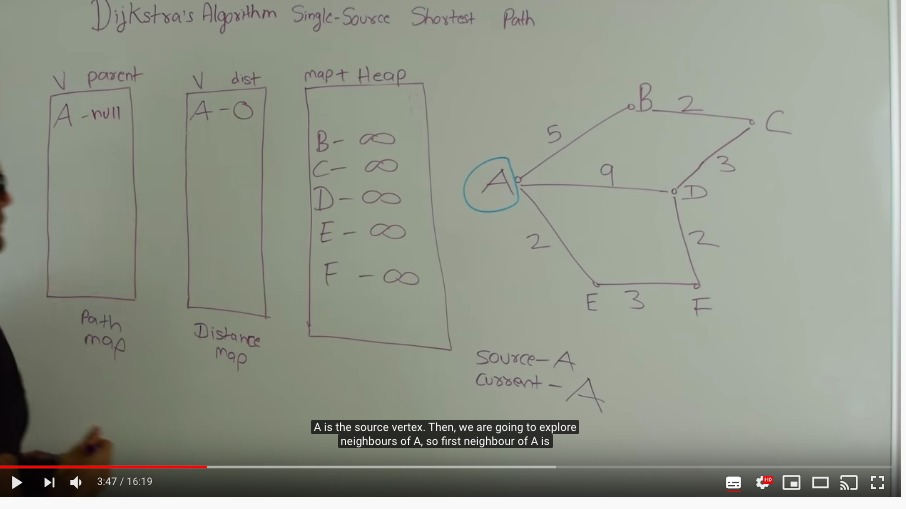 Dijkstra's Algorithm Single-Source Shortest Path
V parent
A - null
Path map
V dist
A - 0
Distance map
map + Heap
B - ∞
C - ∞
D - ∞
E - ∞
F - ∞
A
B
C
D
E
F
5
2
9
3
2
2
3
Source - A
Current - A
A is the source vertex. Then, we are going to explore
neighbours of A, so first neighbour of A is
3:47 / 16:19
HD